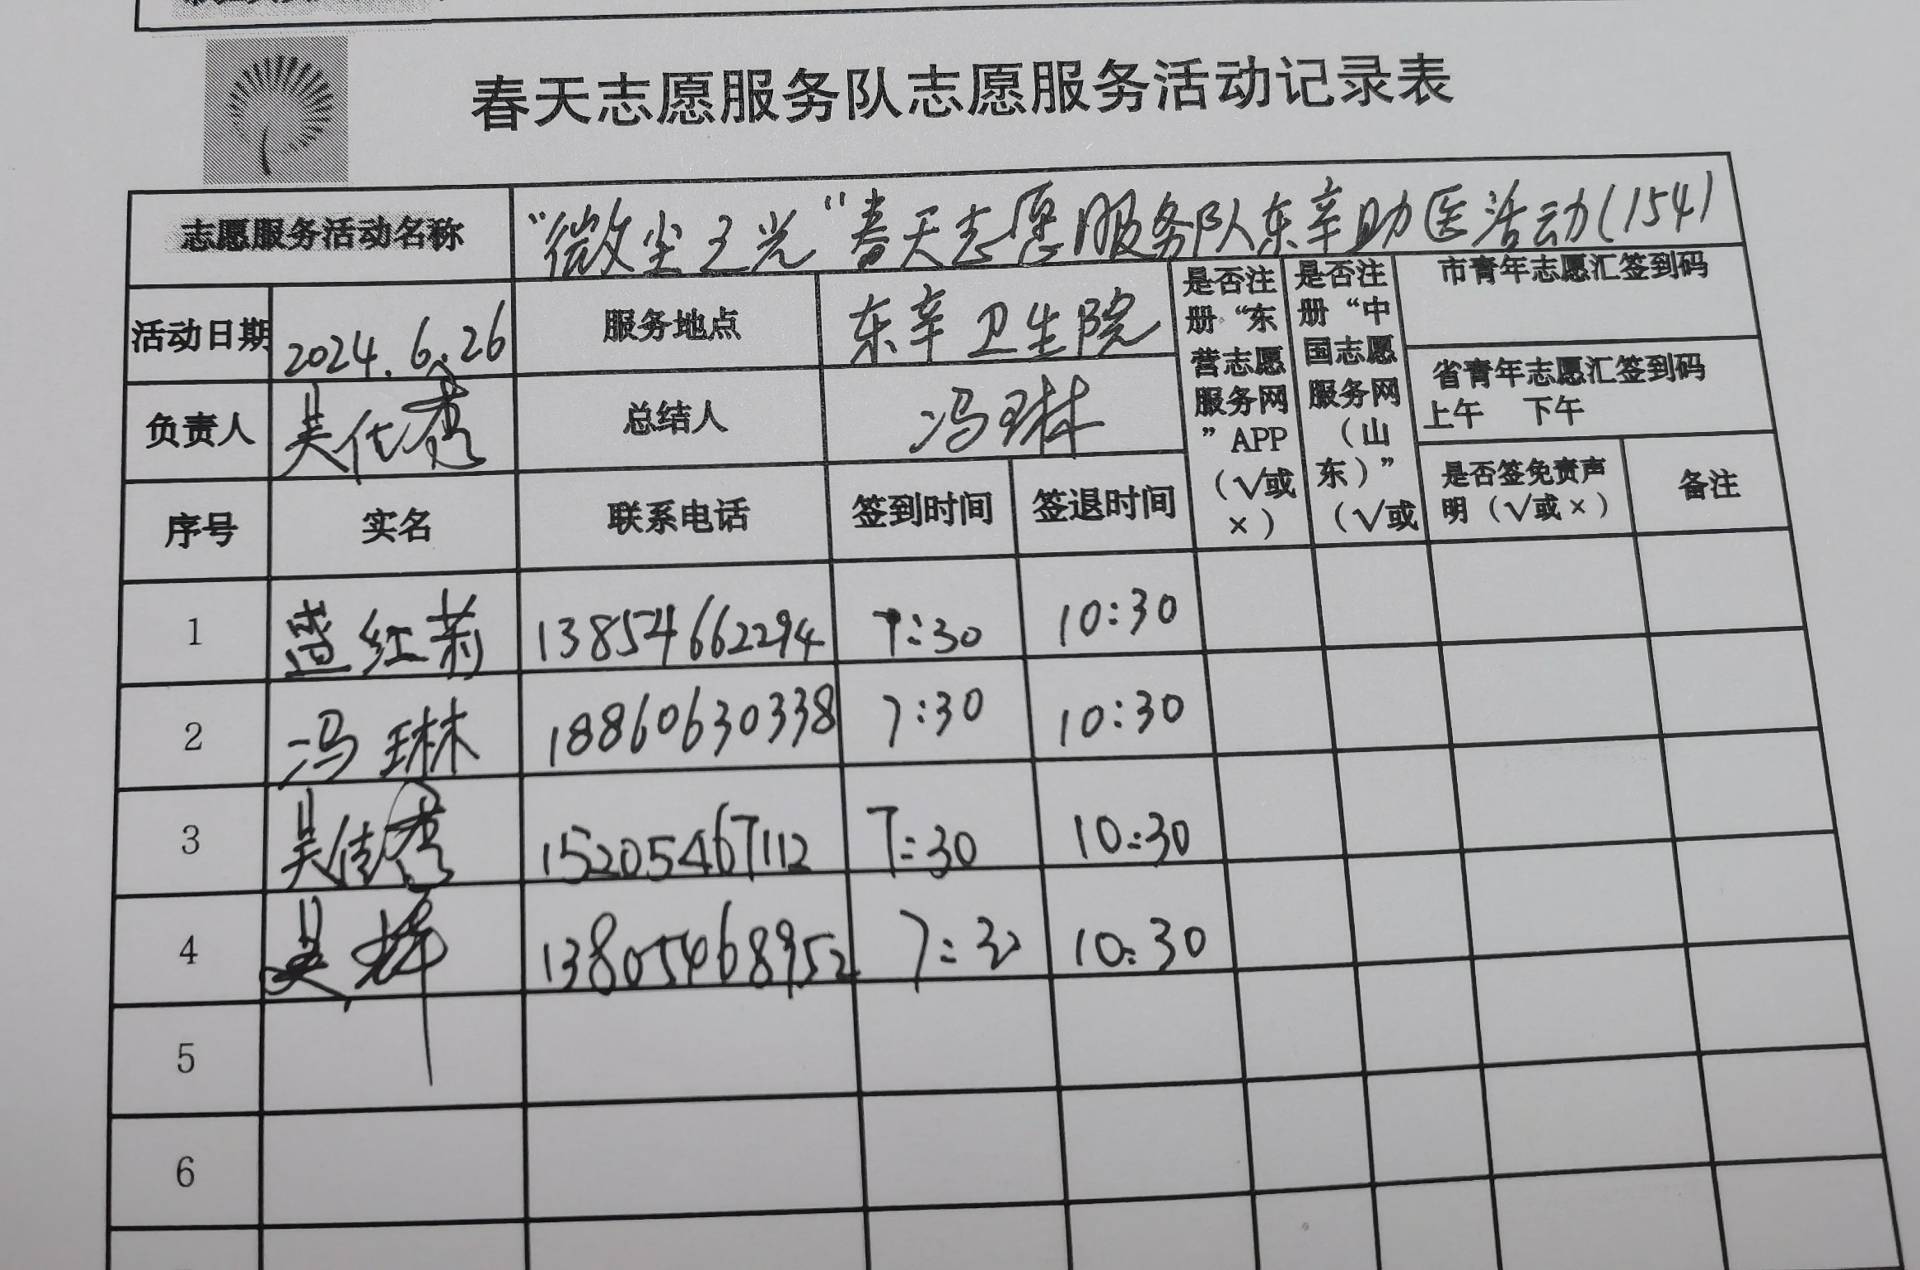 春天志愿服务队志愿服务活动记录表
志愿服务活动名称 “微尘之光“春天志愿服务队东辛助医活动(154)
活动日期 2024.6.26 服务地点 东辛卫生院
负责人 吴仕秀 总结人 冯琳
是否注册“东营志愿服务网”APP（√或×）
是否注册“中国志愿服务网（山东）”（√或
市青年志愿汇签到码
省青年志愿汇签到码
上午 下午
序号 实名 联系电话 签到时间 签退时间 是否签免责声明（√或×） 备注
1 盛红莉 13854662294 7:30 10:30
2 冯琳 18860630338 7:30 10:30
3 吴仕秀 15205467112 7:30 10:30
4 吴 13805468952 7:30 10:30
5
6